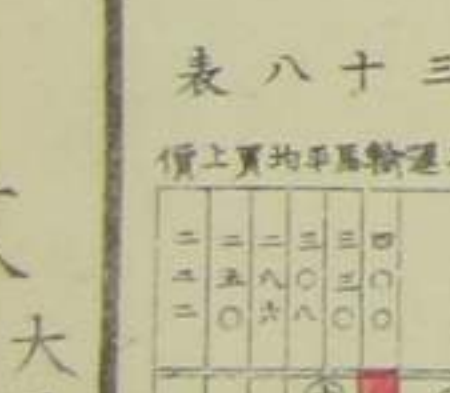 三十八表
運輸馬平均買上價
四〇〇
三三〇
三〇八
二八六
二五〇
二二二
大